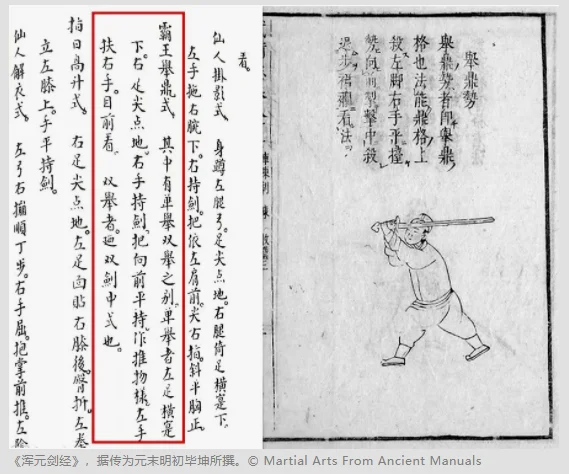 看。
仙人掛影式。身蹲左腿弓。足尖点地。右腿倚足橫寔下。
左手拖右腕下。右持劍。把依左肩前。尖右指。斜半胸正。
霸王舉鼎式。其中有单舉双舉之别。单舉者左足橫寔
下。右足尖点地。右手持劍。把向前平持。作推物樣。左手
扶右手。目前看。双舉者。廼双劍中式也。
指日高升式。右足尖点地。左足面貼右膝後。臀折。左拳
立左膝上。手平持劍。
仙人解衣式。左弓右蹦順丁步。右手屈。抱掌前推。左
舉鼎勢
舉鼎勢者即舉鼎
格也法能鼎格上
殺左脚右手平擡
勢向前掣擊中殺
退步裙襴看法
《浑元剑经》，据传为元末明初毕坤所撰。© Martial Arts From Ancient Manuals